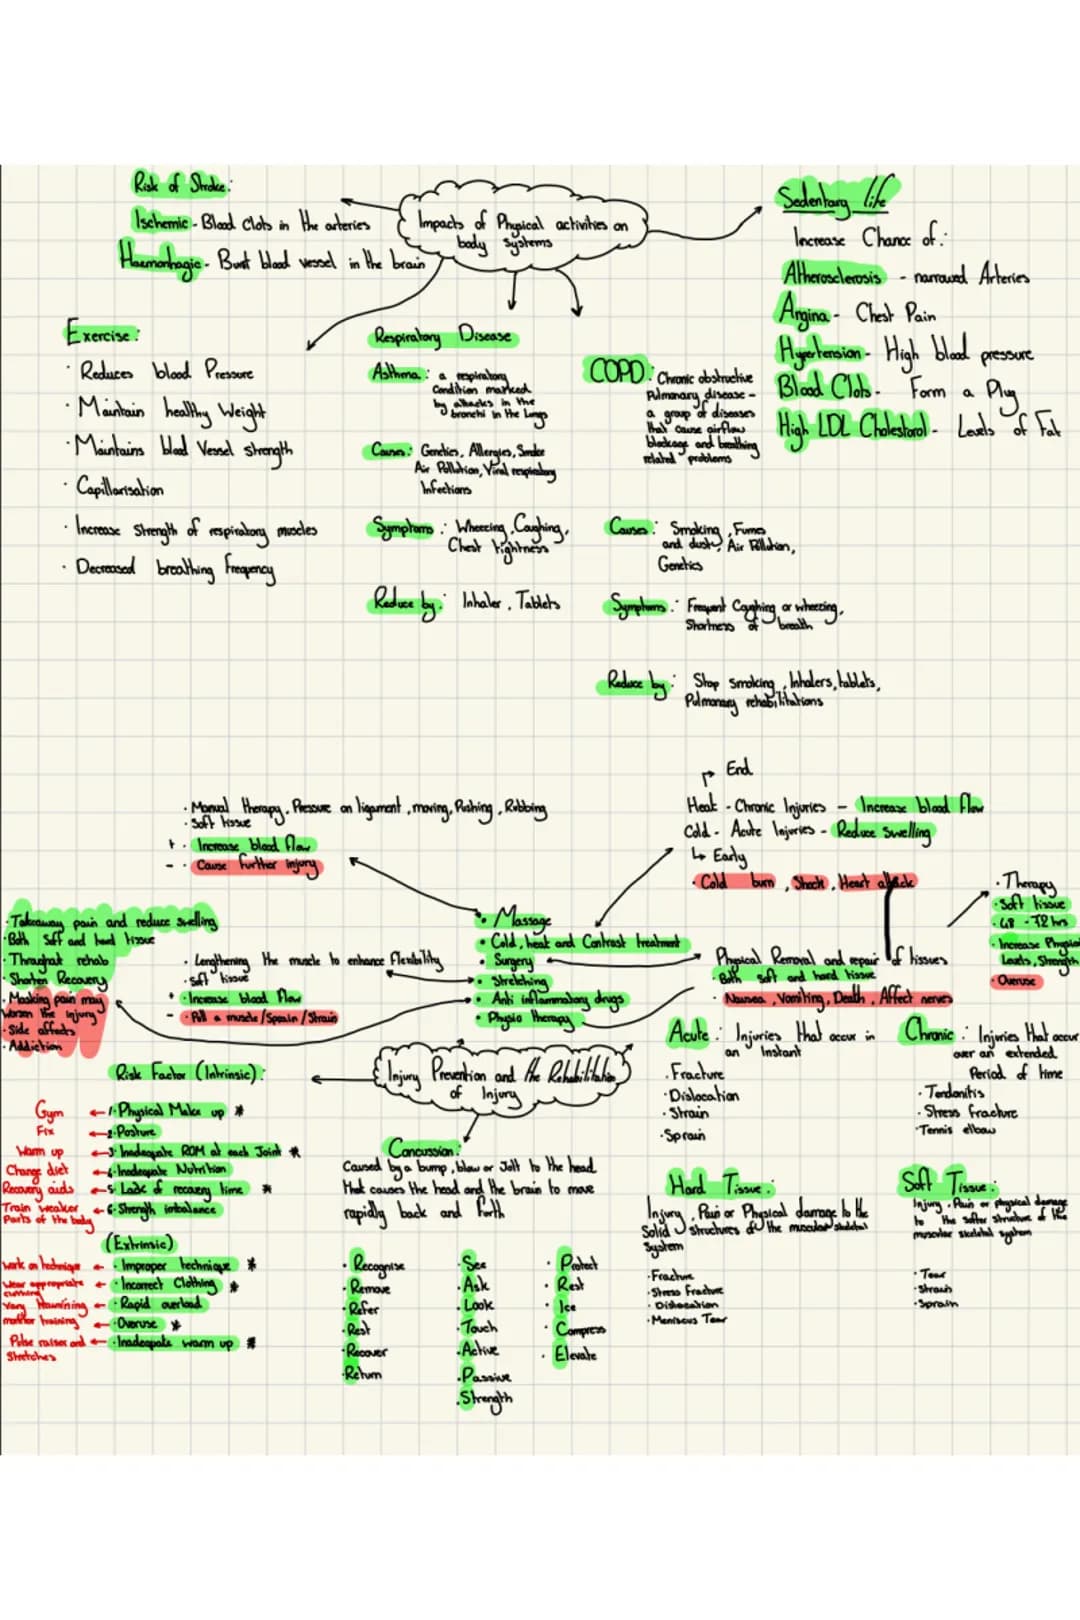 Impacts of Physical activities on
body systems
Risk of Stroke:
Ischemic - Blood Clots in the arteries
Haemorrhagic - Burst blood vessel in the brain
Sedentary life
Increase Chance of:
Atherosclerosis - narrowed Arteries
Angina - Chest Pain
Hypertension - High blood pressure
Blood Clots - Form a Plug
High LDL Cholesterol - Levels of Fat
Exercise:
· Reduces blood Pressure
· Maintain healthy Weight
· Maintains blood Vessel strength
· Capillarisation
· Increase Strength of respiratory muscles
· Decreased breathing Frequency
Respiratory Disease
Asthma: a respiratory
condition marked
by attacks in the
bronchi in the Lungs
Causes: Genetics, Allergies, Smoke
Air Pollution, Viral respiratory
Infections
Symptoms: Wheezing, Coughing,
Chest tightness
Reduce by: Inhaler, Tablets
COPD: Chronic obstructive
Pulmonary disease -
a group of diseases
that cause airflow
blockage and breathing
related problems
Causes: Smoking, Fumes
and dust, Air Pollution,
Genetics
Symptoms: Frequent Coughing or wheezing,
Shortness of breath
Reduce by: Stop smoking, Inhalers, tablets,
Pulmonary rehabilitations
· Manual therapy, Pressure on ligament, moving, Pushing, Rubbing
· Soft tissue
+ · Increase blood flow
- · Cause further injury
End
Heat - Chronic Injuries - Increase blood flow
Cold - Acute Injuries - Reduce swelling
Early
· Cold burn, Shock, Heart attack
· Therapy
· Soft tissue
· 48 - 72 hrs
· Increase Physical
Levels, Strength
· Overuse
· Takeaway pain and reduce swelling
· Both Soft and hard tissue
· Throughout rehab
· Shorten Recovery
· Masking pain may
worsen the injury
· Side affects
· Addiction
· Lengthening the muscle to enhance flexibility
· soft tissue
+ · Increase blood flow
- · Pull a muscle/Sprain/Strain
· Massage
· Cold, heat and Contrast treatment
· Surgery
· Stretching
· Anti inflammatory drugs
· Physio therapy
· Physical Removal and repair of tissues
· Both soft and hard tissue
· Nausea, Vomiting, Death, Affect nerves
Injury Prevention and the Rehabilitation
of Injury
Risk Factor (Intrinsic):
Gym ← 1· Physical Make up *
Fix ← 2· Posture
Warm up ← 3· Inadequate ROM at each Joint *
Change diet ← 4· Inadequate Nutrition
Recovery aids ← 5· Lack of recovery time *
Train weaker
Parts of the body
← 6· Strength imbalance
(Extrinsic)
Work on technique ← · Improper technique *
Wear appropriate
← · Incorrect Clothing *
← · Rapid overload
training ← · Overuse *
Pulse raiser and
Stretches
← · Inadequate warm up *
Concussion:
Caused by a bump, blow or Jolt to the head
that causes the head and the brain to move
rapidly back and forth
· Recognise
· Remove
· Refer
· Rest
· Recover
· Return
· See
· Ask
· Look
· Touch
· Active
· Passive
· Strength
· Protect
· Rest
· Ice
· Compress
· Elevate
Acute: Injuries that occur in
an instant
· Fracture
· Dislocation
· Strain
· Sprain
Chronic: Injuries that occur
over an extended
Period of time
· Tendonitis
· Stress fracture
· Tennis elbow
Hard Tissue:
Injury, Pain or Physical damage to the
Solid structures of the muscular skeletal
System
· Fracture
· Stress Fracture
· Dislocation
· Meniscus Tear
Soft Tissue:
Injury, Pain or physical damage
to the softer structure of the
muscular skeletal system
· Tear
· Strain
· Sprain